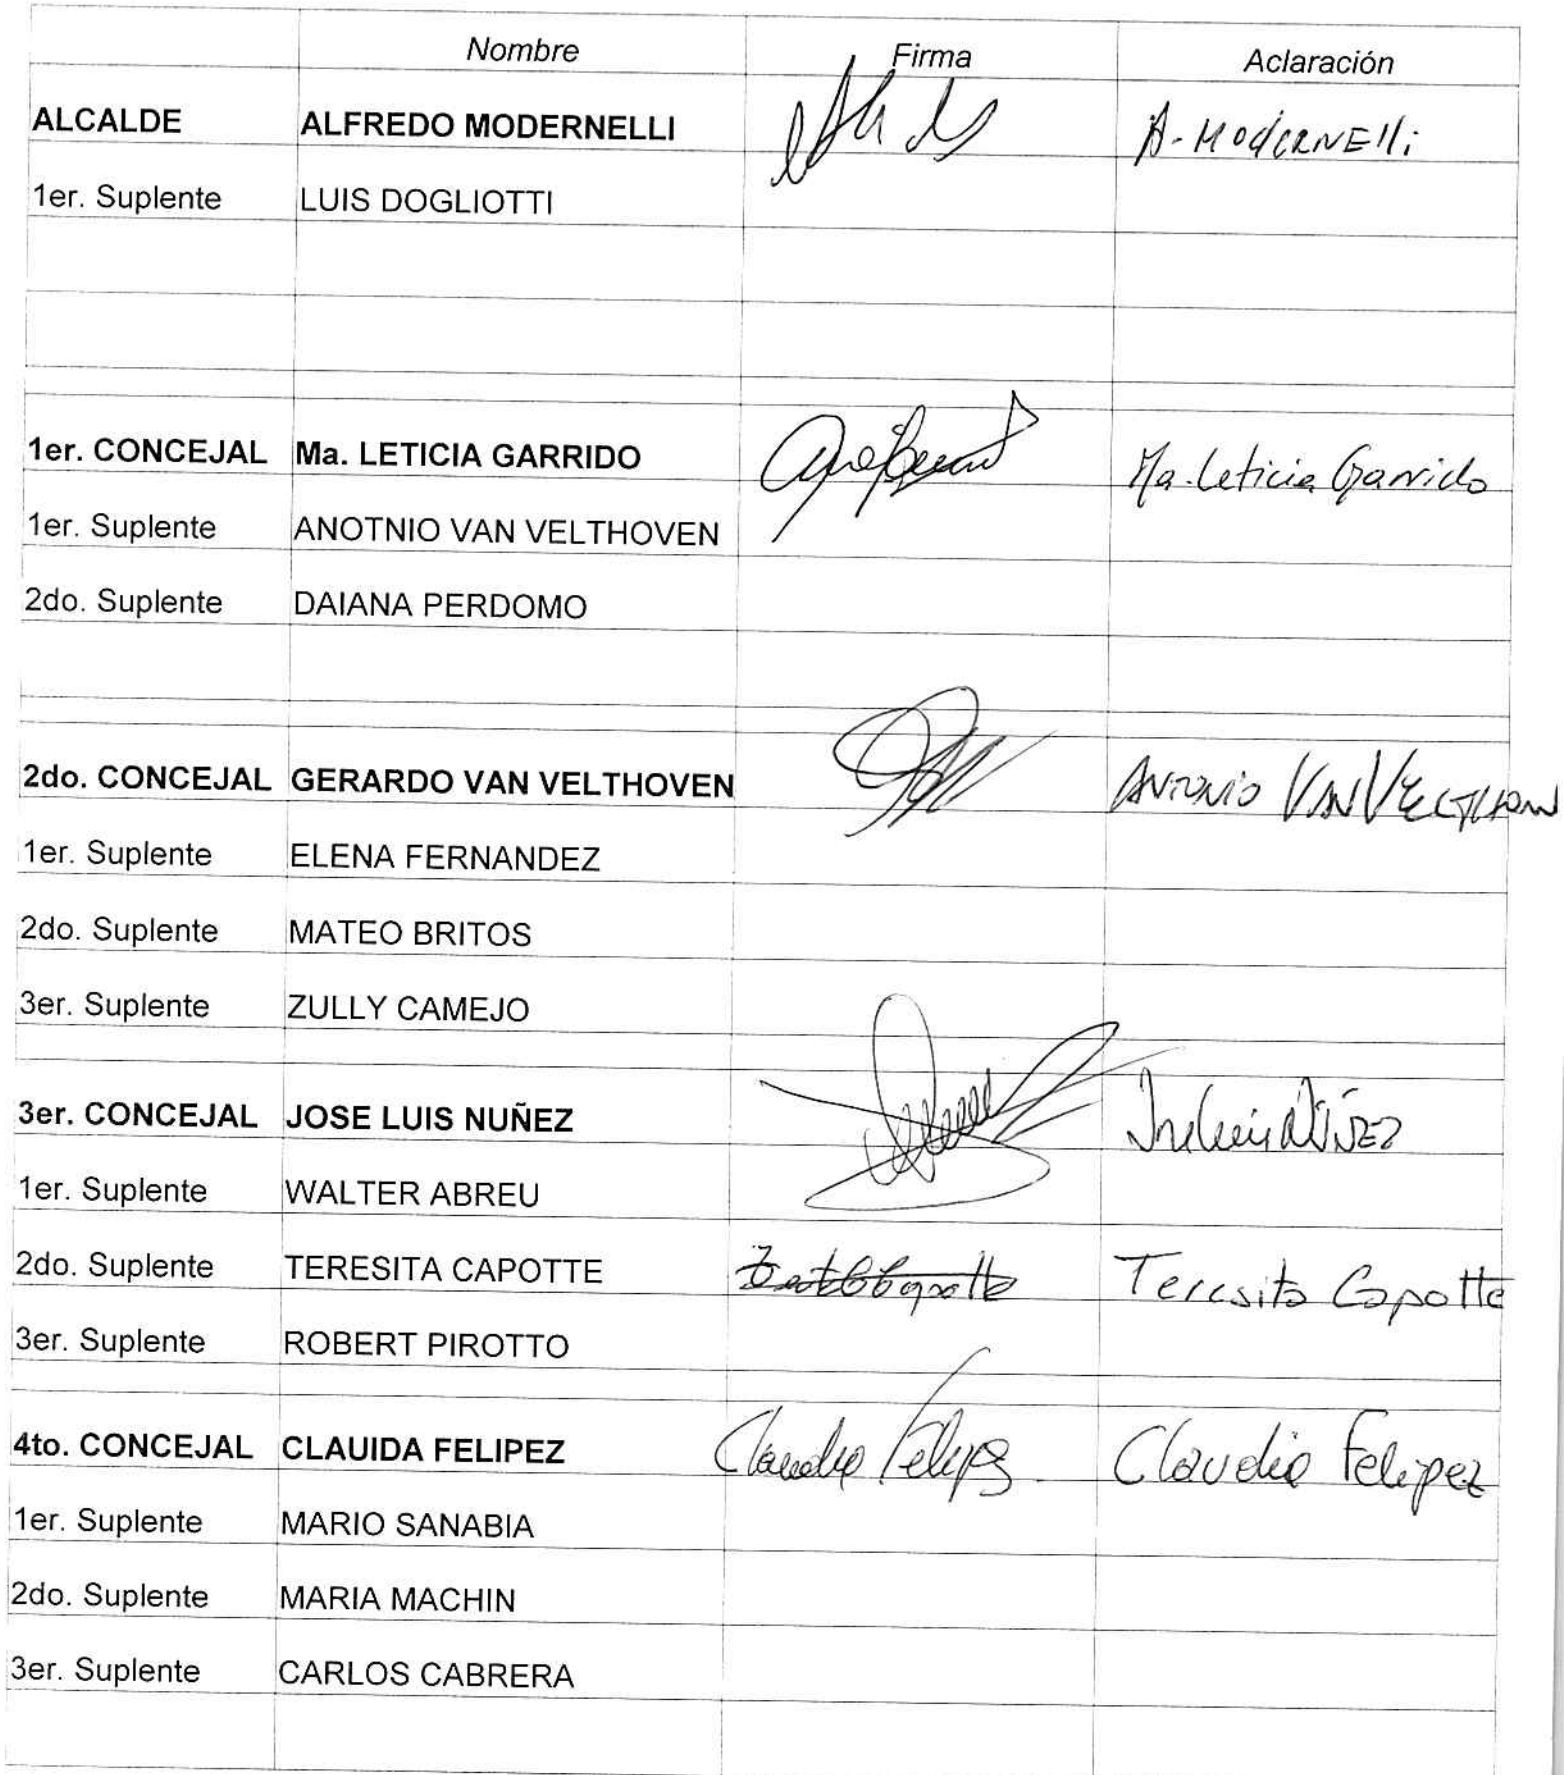 Nombre Firma Aclaración
ALCALDE ALFREDO MODERNELLI A. MODERNElli
1er. Suplente LUIS DOGLIOTTI
1er. CONCEJAL Ma. LETICIA GARRIDO Ma. Leticia Garrido
1er. Suplente ANOTNIO VAN VELTHOVEN
2do. Suplente DAIANA PERDOMO
2do. CONCEJAL GERARDO VAN VELTHOVEN ANTONIO VAN
1er. Suplente ELENA FERNANDEZ
2do. Suplente MATEO BRITOS
3er. Suplente ZULLY CAMEJO
3er. CONCEJAL JOSE LUIS NUÑEZ Luis NÚÑEZ
1er. Suplente WALTER ABREU
2do. Suplente TERESITA CAPOTTE Teresita Capotte
3er. Suplente ROBERT PIROTTO
4to. CONCEJAL CLAUIDA FELIPEZ Claudia Felipez Claudia Felipez
1er. Suplente MARIO SANABIA
2do. Suplente MARIA MACHIN
3er. Suplente CARLOS CABRERA